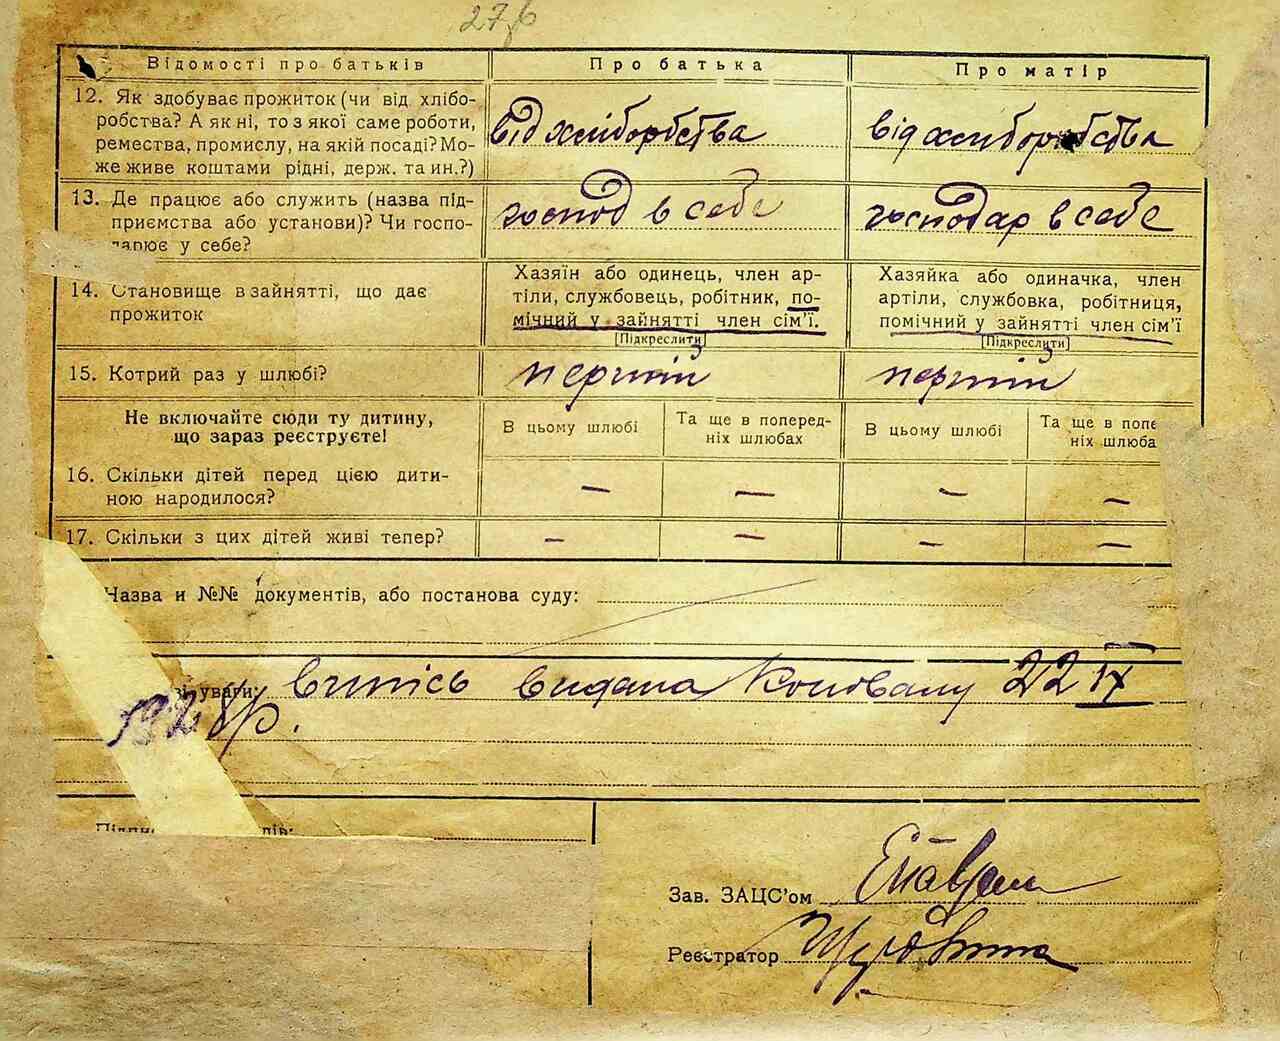 276
Відомості про батьків
Про батька
Про матір
12. Як здобуває прожиток (чи від хлібо-
робства? А як ні, то з якої саме роботи,
ремества, промислу, на якій посаді? Мо-
же живе коштами рідні, держ. та ин.?)
від хліборобства
від хліборобства
13. Де працює або служить (назва під-
приємства або установи)? Чи госпо-
дарює у себе?
господ в себе
господар в себе
14. Становище в зайнятті, що дає
прожиток
Хазяїн або одинець, член ар-
тіли, службовець, робітник, по-
мічний у зайнятті член сім'ї.
[Підкреслити]
Хазяйка або одиначка, член
артіли, службовка, робітниця,
помічний у зайнятті член сім'ї
[Підкреслити]
15. Котрий раз у шлюбі?
перший
перший
Не включайте сюди ту дитину,
що зараз реєструєте!
В цьому шлюбі
Та ще в поперед-
ніх шлюбах
В цьому шлюбі
Та ще в попе
ніх шлюба
16. Скільки дітей перед цією дити-
ною народилося?
— — — —
17. Скільки з цих дітей живі тепер?
— — — —
Назва и №№ документів, або постанова суду:
уваги: випісь видана Коновалу 22 IX
1928 р.
дів:
Зав. ЗАЦС'ом
Реєстратор